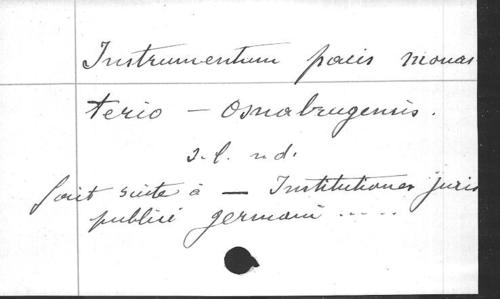 Instrumentum pacis monas
terio - Osnabrugensis.
s.l. n.d.
fait suite à - Institutiones juris
publici germani .....